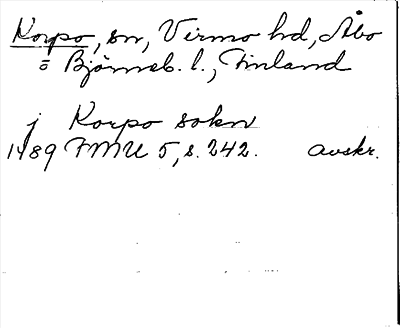 Korpo, sn, Virmo hd, Åbo
o Björneb. l., Finland
j Korpo sokn
1489 FMU 5, s. 242. avskr.